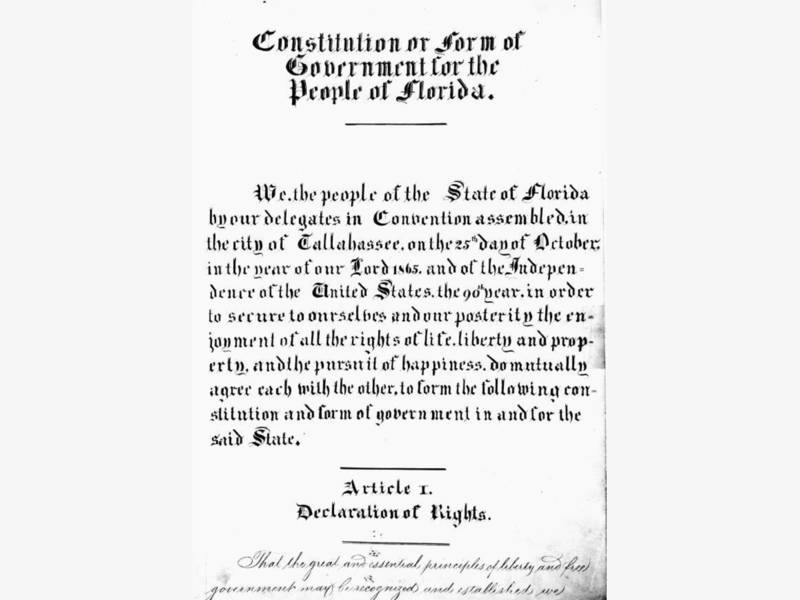 Constitution or Form of
Government for the
People of Florida.
We, the people of the State of Florida
by our delegates in Convention assembled, in
the city of Tallahassee, on the 25th day of October,
in the year of our Lord 1865, and of the Indepen=
dence of the United States, the 90th year, in order
to secure to ourselves and our posterity the en-
joyment of all the rights of life, liberty and prop-
erty, and the pursuit of happiness, do mutually
agree each with the other, to form the following con-
stitution and form of government in and for the
said State.
Article I.
Declaration of Rights.
That the great and essential principles of liberty and free
government may be recognized and established, we